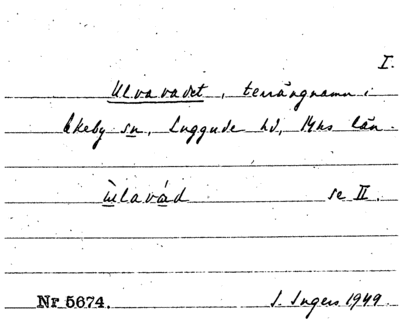 I.
Ulvavadet, terrängnamn i
Ekeby sn, Luggude hd, Mhs län.
ùlavád se II.
Nr 5674. I. Ingers 1949.